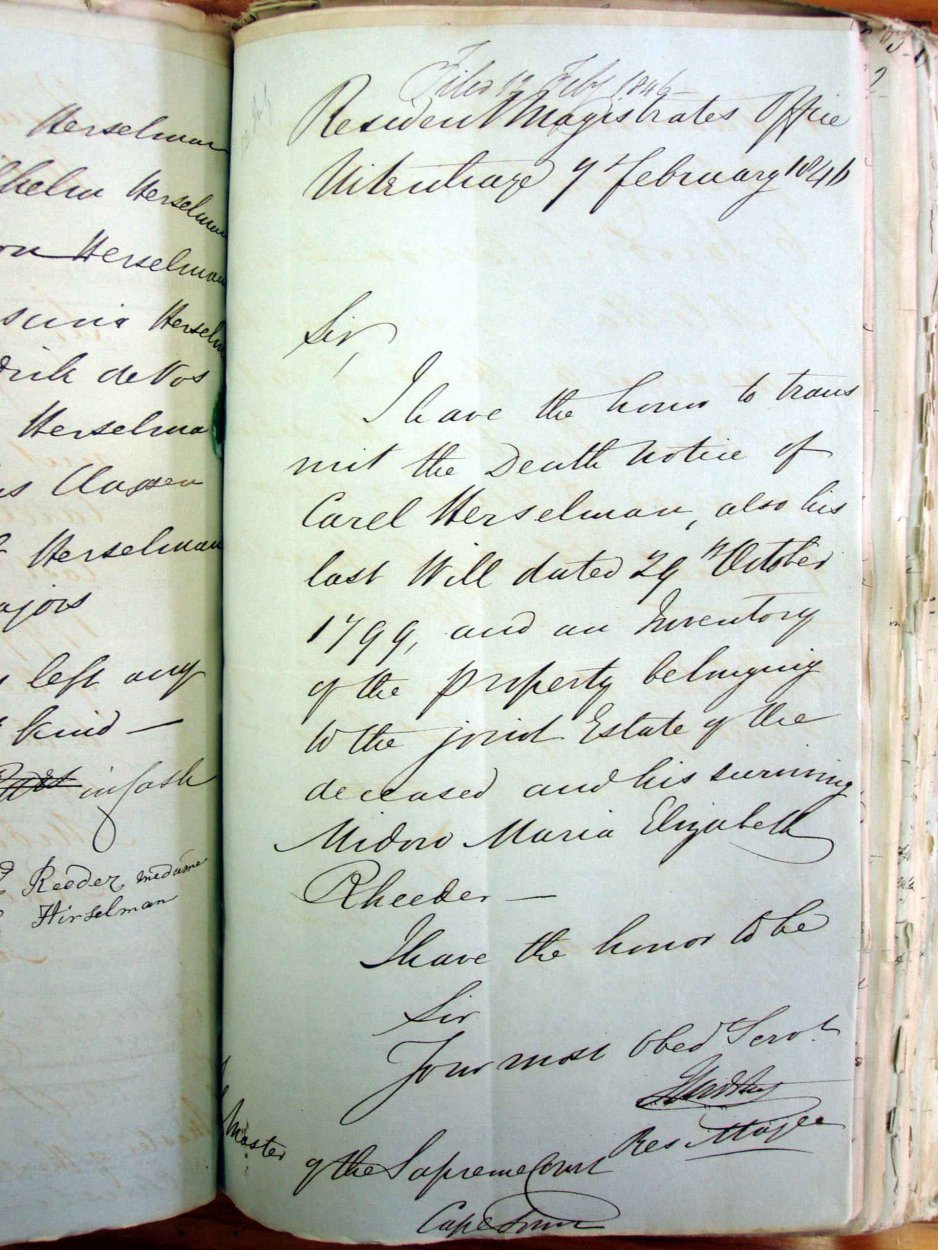 Herselman
lhelm Herselman
on Herselman
suna Herselm
drik de Vos
Herselma
s Claasen
Herselman
ajors
left any
kind —
in Cash
Reeder, medame
Hirselman
Filed 12 Feby 1846
Resident Magistrates Office
Uitenhage 7th February 1846
Sir,
I have the honor to trans
mit the Death notice of
Carel Herselman, also his
last Will dated 29th October
1799, and an Inventory
of the property belonging
to the joint Estate of the
deceased and his surviving
Widow Maria Elizabeth
Rheeder —
I have the honor to be
Sir
Your most Obed Servt
Res Magte
Master
of the Supreme Court
Cape Town